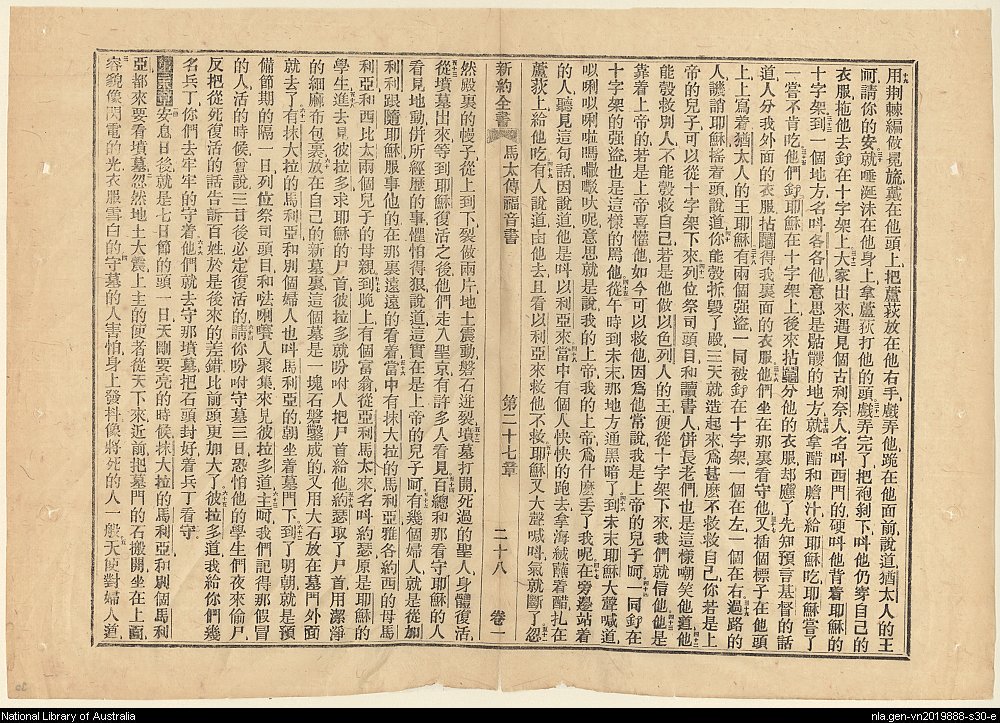 用荆棘編做冕旒戴在他頭上把蘆荻放在他右手戲弄他跪在他面前說道猶太人的王
呵請你的安就唾涎沫在他身上拿蘆荻打他的頭戲弄完了把袍剝下呌他仍穿自己的
衣服拖他去釘在十字架上大家出來遇見個古利奈人名呌西門的硬呌他背着耶穌的
十字架到一個地方名呌各各他意思是骷髏的地方就拿醋和膽汁給耶穌吃耶穌嘗了
一嘗不肯吃他們釘耶穌在十字架上後來拈鬮分他的衣服却應了先知預言基督的話
道人分我外面的衣服拈鬮得我裏面的衣服他們坐在那裏看守他又插個標子在他頭
上上寫着猶太人的王耶穌有兩個強盜一同被釘在十字架一個在左一個在右過路的
人譏誚耶穌搖着頭說道你能彀拆毀了殿三天就造起來爲甚麼不救救自己你若是上
帝的兒子可以從十字架下來列位祭司頭目和讀書人併長老們也是這樣嘲笑他道他
能彀救別人不能彀救自己若是他做以色列人的王便從十字架下來我們就信他他是
靠着上帝的若是上帝喜懽他如今可以救他因爲他常說我是上帝的兒子呵一同釘在
十字架的強盜也是這樣的罵他從午時到未末那地方通黑暗了到未末耶穌大聲喊道
以唎以唎啦嗎呔呢意思就是說我的上帝我的上帝爲什麼丟了我呢在旁邊站着
的人聽見這句話因說道他是呌以利亞來當中有個人快快的跑去拿海絨蘸着醋扎在
蘆荻上給他吃有人說道由他去且看以利亞來救他不救耶穌又大聲喊呌氣就斷了忽
新約全書 馬太傳福音書 第二十七章 二十八 卷一
然殿裏的幔子從上到下裂做兩片地土震動磐石迸裂墳墓打開死過的聖人身體復活
從墳墓出來等到耶穌復活之後他們走入聖京有許多人看見百總和那看守耶穌的人
看見地動併所經歷的事懼怕得狠說道這實在是上帝的兒子呵有幾個婦人就是從加
利利跟隨耶穌服事他的在那裏遠遠的看着當中有抹大拉的馬利亞雅各約西的母馬
利亞和西比太兩個兒子的母親到晚上有個富翁從亞利馬太來名呌約瑟原是耶穌的
學生進去見彼拉多求耶穌的尸首彼拉多就吩咐人把尸首給他約瑟取了尸首用潔淨
的細麻布包裹放在自己的新墓裏這個墓是一塊石磐鑿成的又用大石放在墓門外面
就去了有抹大拉的馬利亞和別個婦人也呌馬利亞的朝坐着墓門下到了明朝就是預
備節期的隔一日列位祭司頭目和㗒唎㘔人聚集來見彼拉多道主呵我們記得那假冒
的人活的時候曾說三日後必定復活的請你吩咐守墓三日恐怕他的學生們夜來偷尸
反把從死復活的話告訴百姓於是後來的差錯比前頭更加大了彼拉多道我給你們幾
名兵丁你們去牢牢的守着他們就去守那墳墓把石頭封好着兵丁看守
安息日後就是七日節的頭一日天剛要亮的時候抹大拉的馬利亞和別個馬利
亞都來要看墳墓忽然地土大震上主的使者從天下來近前把墓門的石搬開坐在上面
容貌像閃電的光衣服雪白的守墓的人害怕身上發抖像將死的人一般天使對婦人道
National Library of Australia
nla.gen-vn2019888-s30-e